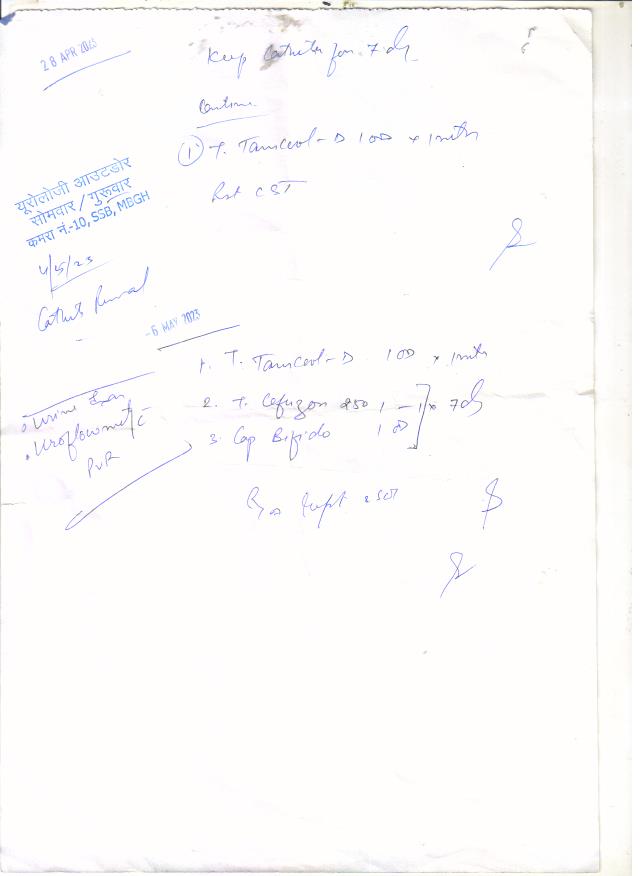 28 APR 2023
Keep Catheter for 7 d
Continue
① T. Tamceol-D 1 OD x 1 mth
Rst CST
यूरोलोजी आउटडोर
सोमवार / गुरूवार
कमरा नं.-10, SSB, MBGH
4/5/23
-6 MAY 2023
1. T. Tamceol-D 1 OD x 1 mth
2. T. Cefuzon 250 1 - 1 x 7 d
3. Cap Bifido 1 OD
• Urine Exam
• Uroflowmet c̄
PVR